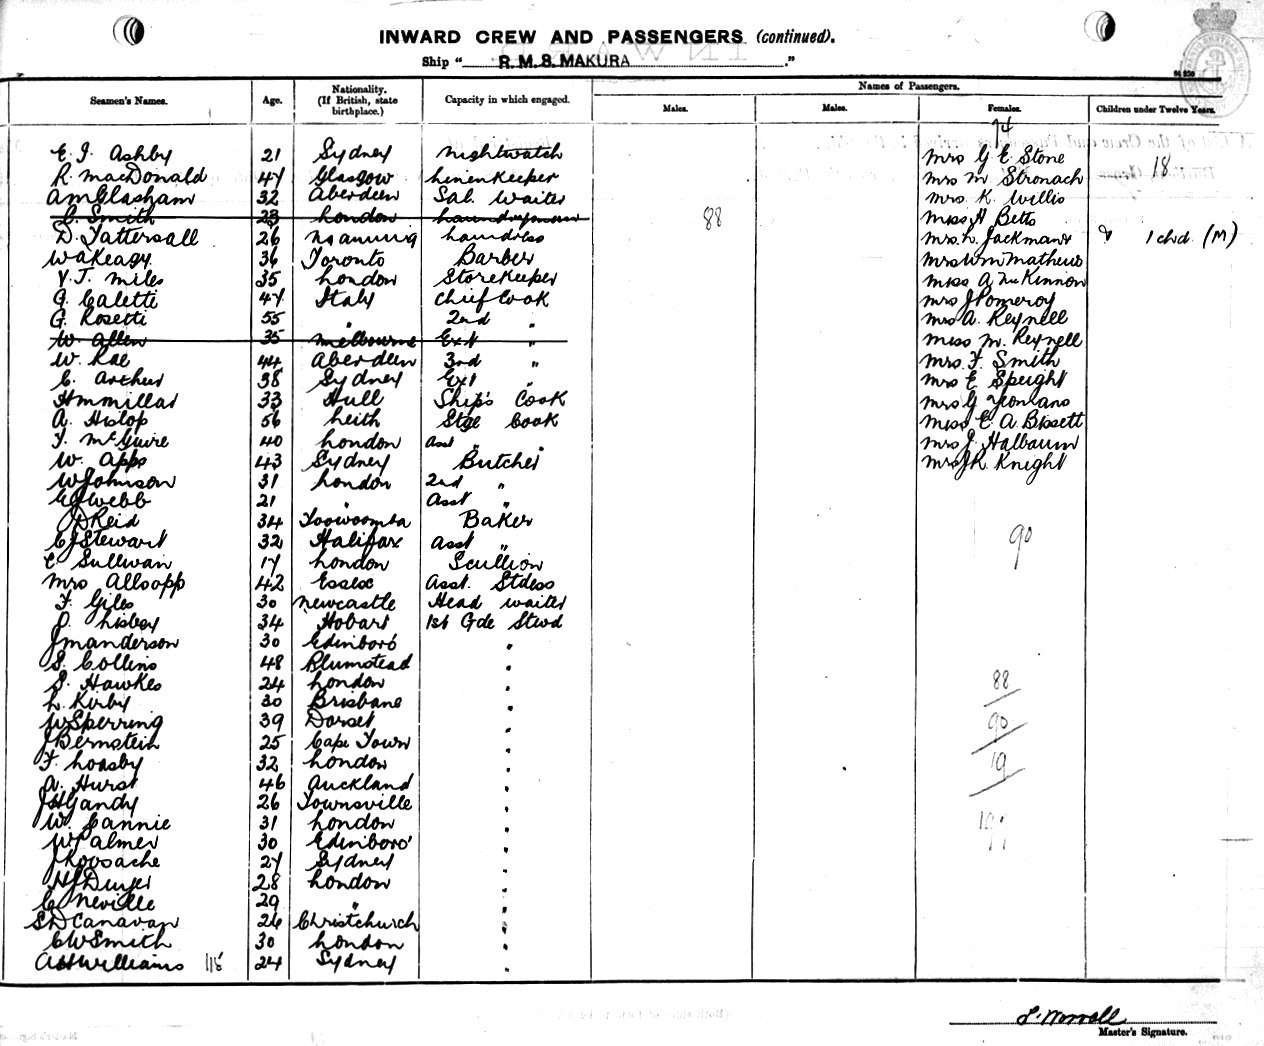 INWARD CREW AND PASSENGERS (continued).
Ship " R.M.S. MAKURA "
Seamen's Names. Age. Nationality. (If British, state birthplace.) Capacity in which engaged. Names of Passengers.
Males. Males. Females. Children under Twelve Years.
74
E. J. Ashby 21 Sydney Nightwatch Mrs G E Stone
R. MacDonald 47 Glasgow Linenkeeper Mrs M Stronach 18
A M Glasham 32 Aberdeen Sal. Waiter Mrs. K. Willis
C. Smith 23 London Laundryman 88 Miss A Betts
D. Tattersall 26 Laundress Mrs. L. Jackman & 1 chd (M)
Wakeagy 36 Toronto Barber Mrs Wm Mathews
V. J. Miles 35 London Storekeeper Miss A McKinnon
G. Caletti 47 Italy Chief Cook Mrs J Pomeroy
G. Rosetti 55 " 2nd " Mrs A. Reynell
W. Allen 35 Melbourne Ext " Miss M. Reynell
W. Rae 44 Aberdeen 3rd " Mrs. F. Smith
C. Arthur 38 Sydney Ext " Mrs E Speight
H M Millar 33 Hull Ship's Cook Mrs G Yeomans
A. Hislop 56 Leith Stge Cook Miss E. A. Bissett
T. McGuire 40 London Asst " " Mrs J. Halbaum
W. Apps 43 Sydney Butcher Mrs J R. Knight
W Johnson 31 London 2nd "
Webb 21 " Asst "
D Reid 34 Toowoomba Baker
C J Stewart 32 Halifax Asst " 90
E Sullivan 17 London Scullion
Mrs Allsopp 42 Essex Asst. Stdess
F. Giles 30 Newcastle Head waiter
P. Lisbey 34 Hobart 1st Gde Stwd
J Manderson 30 Edinboro "
S. Collins 48 Plumstead "
S. Hawkes 24 London " 88
L. Kirby 30 Brisbane "
W Sperring 39 Dorset " 90
J Bernstein 25 Cape Town "
F. Loasby 32 London " 19
A. Hurst 46 Auckland "
J H Gandy 26 Townsville "
W. Cannie 31 London " 197
W Palmer 30 Edinboro' "
J Kovsache 27 Sydney "
28 London "
C. Neville 29 " "
S D Canavan 26 Christchurch "
C W Smith 30 London "
A H Williams 118 24 Sydney "
Master's Signature.